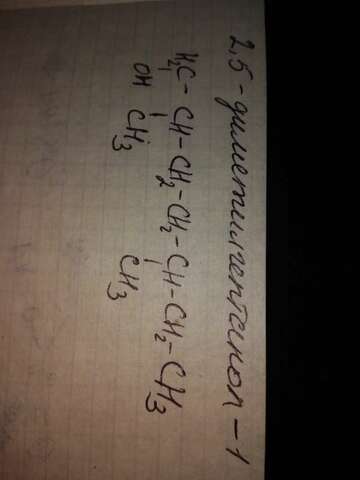 2,5-диметилгептанол-1
H₂C-CH-CH₂-CH₂-CH-CH₂-CH₃
OH CH₃ CH₃